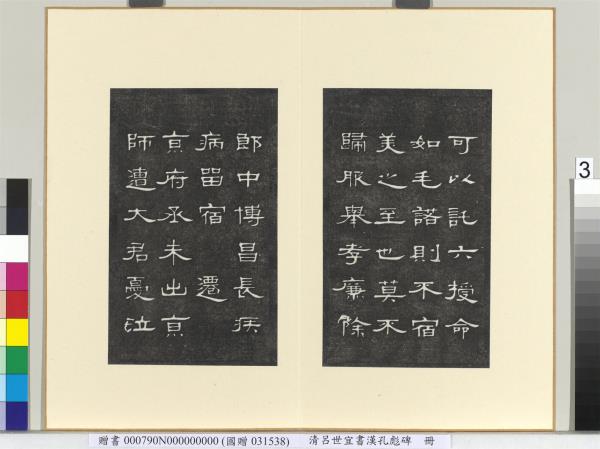 可以託六授命
如毛諾則不宿
美之至也莫不
歸服舉孝廉除
郎中博昌長疾
病留宿 遷
亰府丞未出亰
師遭大君憂泣
3
贈書 000790N000000000 (國贈 031538) 清呂世宜書漢孔彪碑 冊